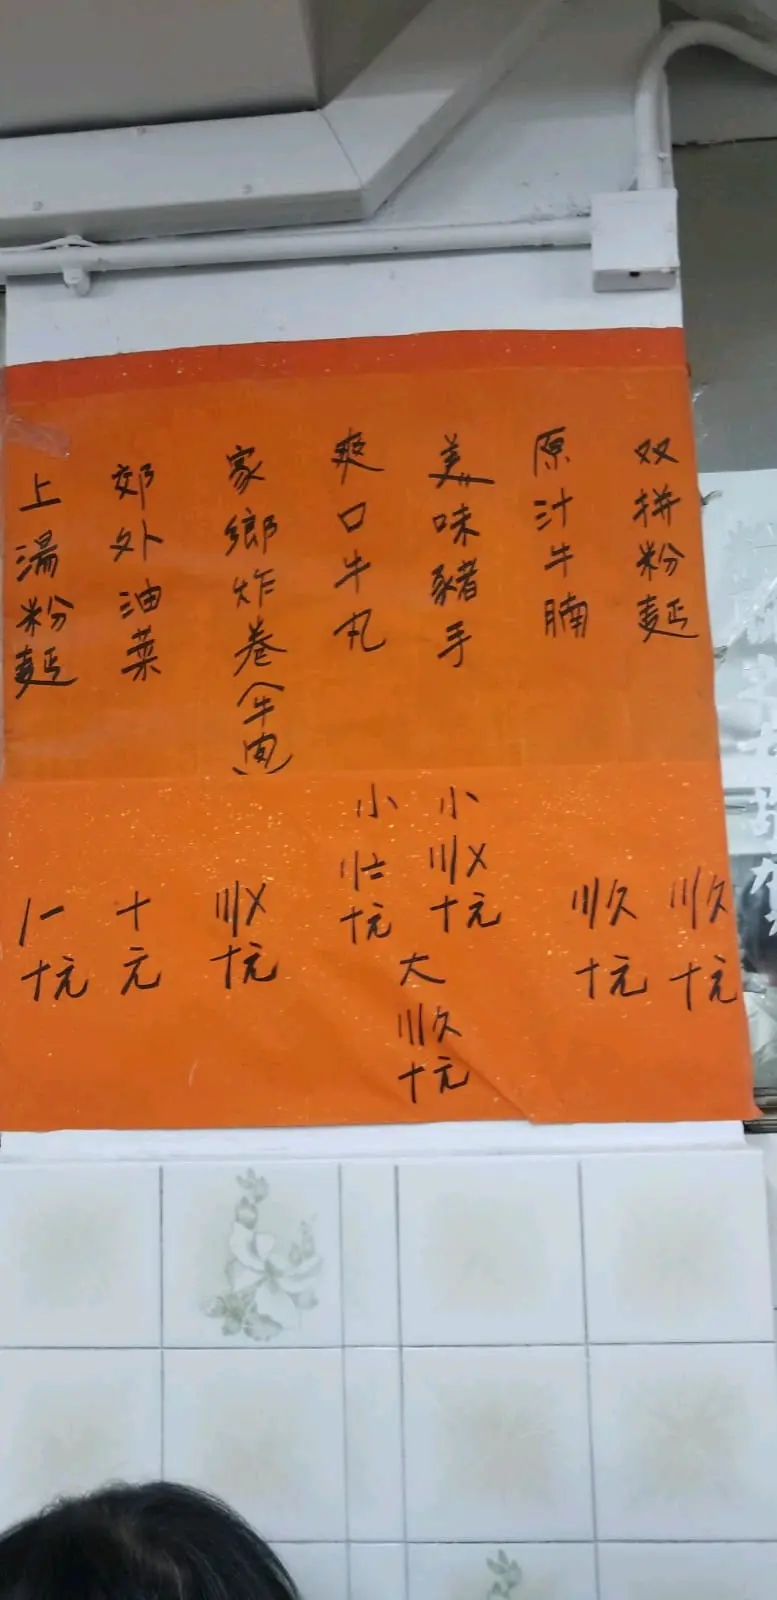 双拼粉麵
〣〩
十元
原汁牛腩
〣〩
十元
美味豬手
小
〣〤
十元
爽口牛丸
小
十元
大
〣〩
十元
家鄉炸卷(牛肉)
〣〤
十元
郊外油菜
十
元
上湯粉麵
十元